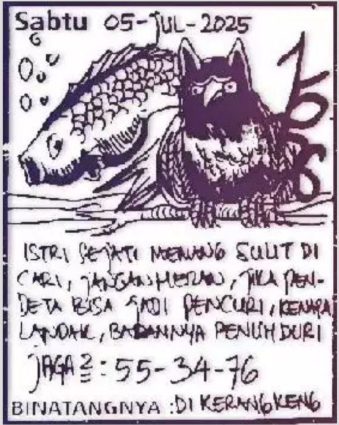 Sabtu 05-JUL-2025
ISTRI SEJATI MEMANG SULIT DI
CARI, JANGAN HERAN, JIKA PEN-
DETA BISA JADI PENCURI, KENAPA
LANDAK, BADANNYA PENUH DURI
JAGA2 : 55-34-76
BINATANGNYA : DI KERANGKENG